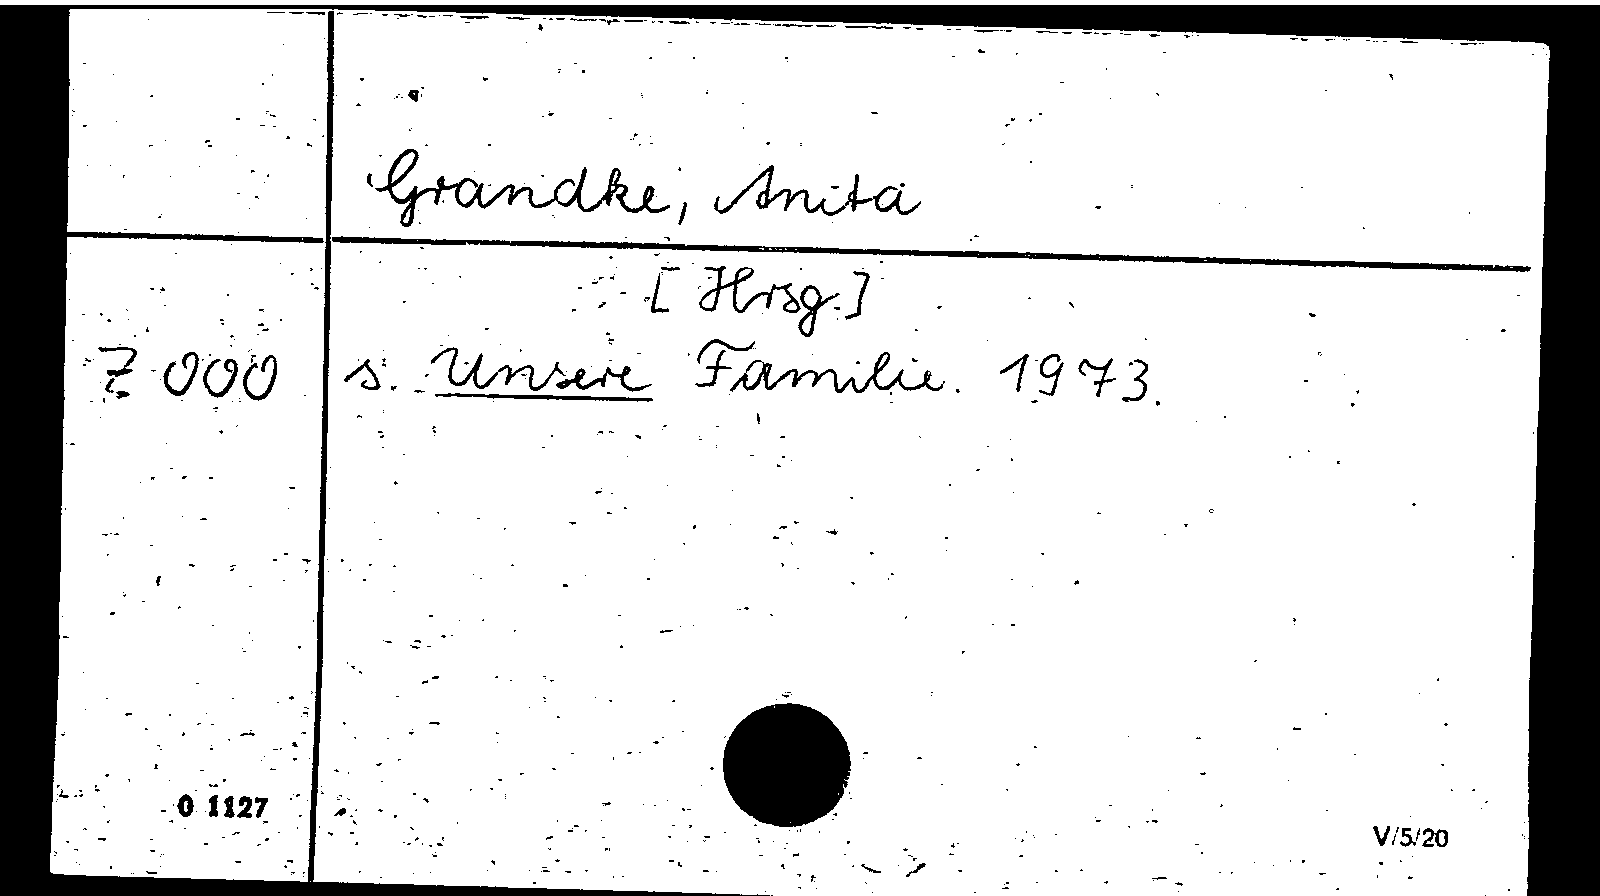 Grandke, Anita
[Hrsg.]
Z 000 s. Unsere Familie. 1973.
0 1127
V/5/20